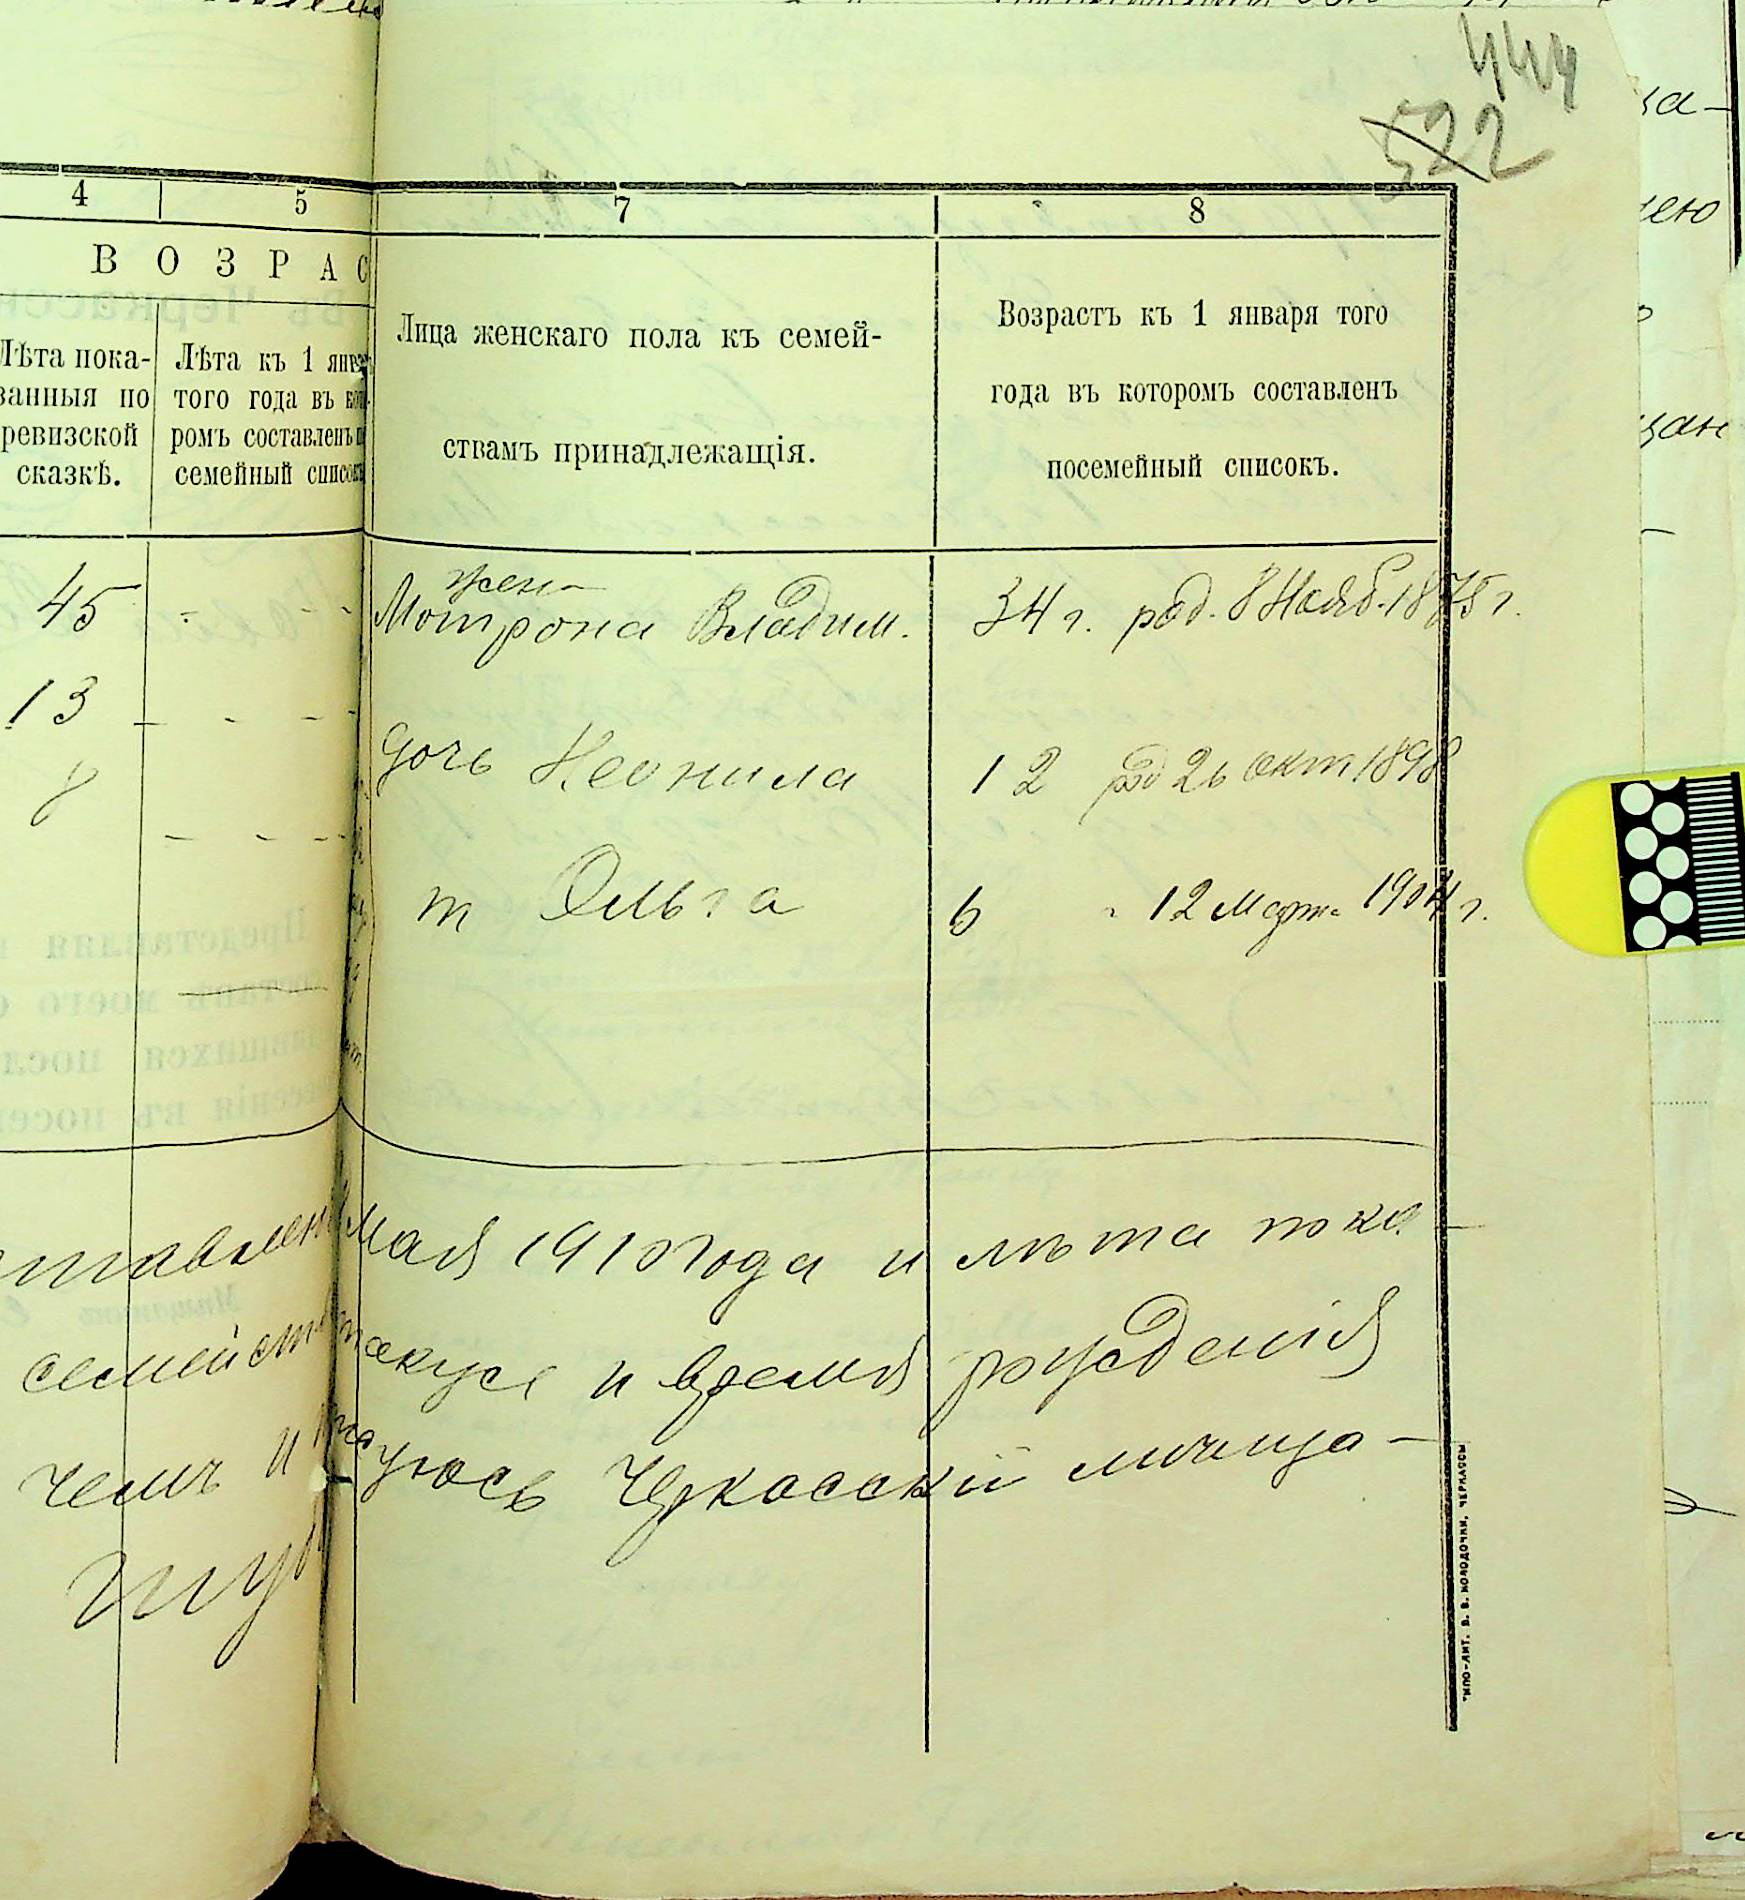 444
522
4 5 7 8
ВОЗРАС
Лѣта пока-
занныя по
ревизской
сказкѣ.
Лѣта къ 1 янв
того года въ кот
ромъ составленъ
семейный списокъ
Лица женскаго пола къ семей-
ствамъ принадлежащія.
Возрастъ къ 1 января того
года въ которомъ составленъ
посемейный списокъ.
45
13
8
жена
Мотрона Владим. 34 г. род. 8 Нояб. 1875 г.
дочь Неонила 12 род 26 окт 1898
т Ольга 6 " 12 Март. 1904 г.
Мая 1910 года и лѣта пока-
семейст также и время рожденія
чемъ и Черкасскій мѣща-
ТИПО-ЛИТ. В. В. КОЛОДОЧКИ, ЧЕРКАССЫ